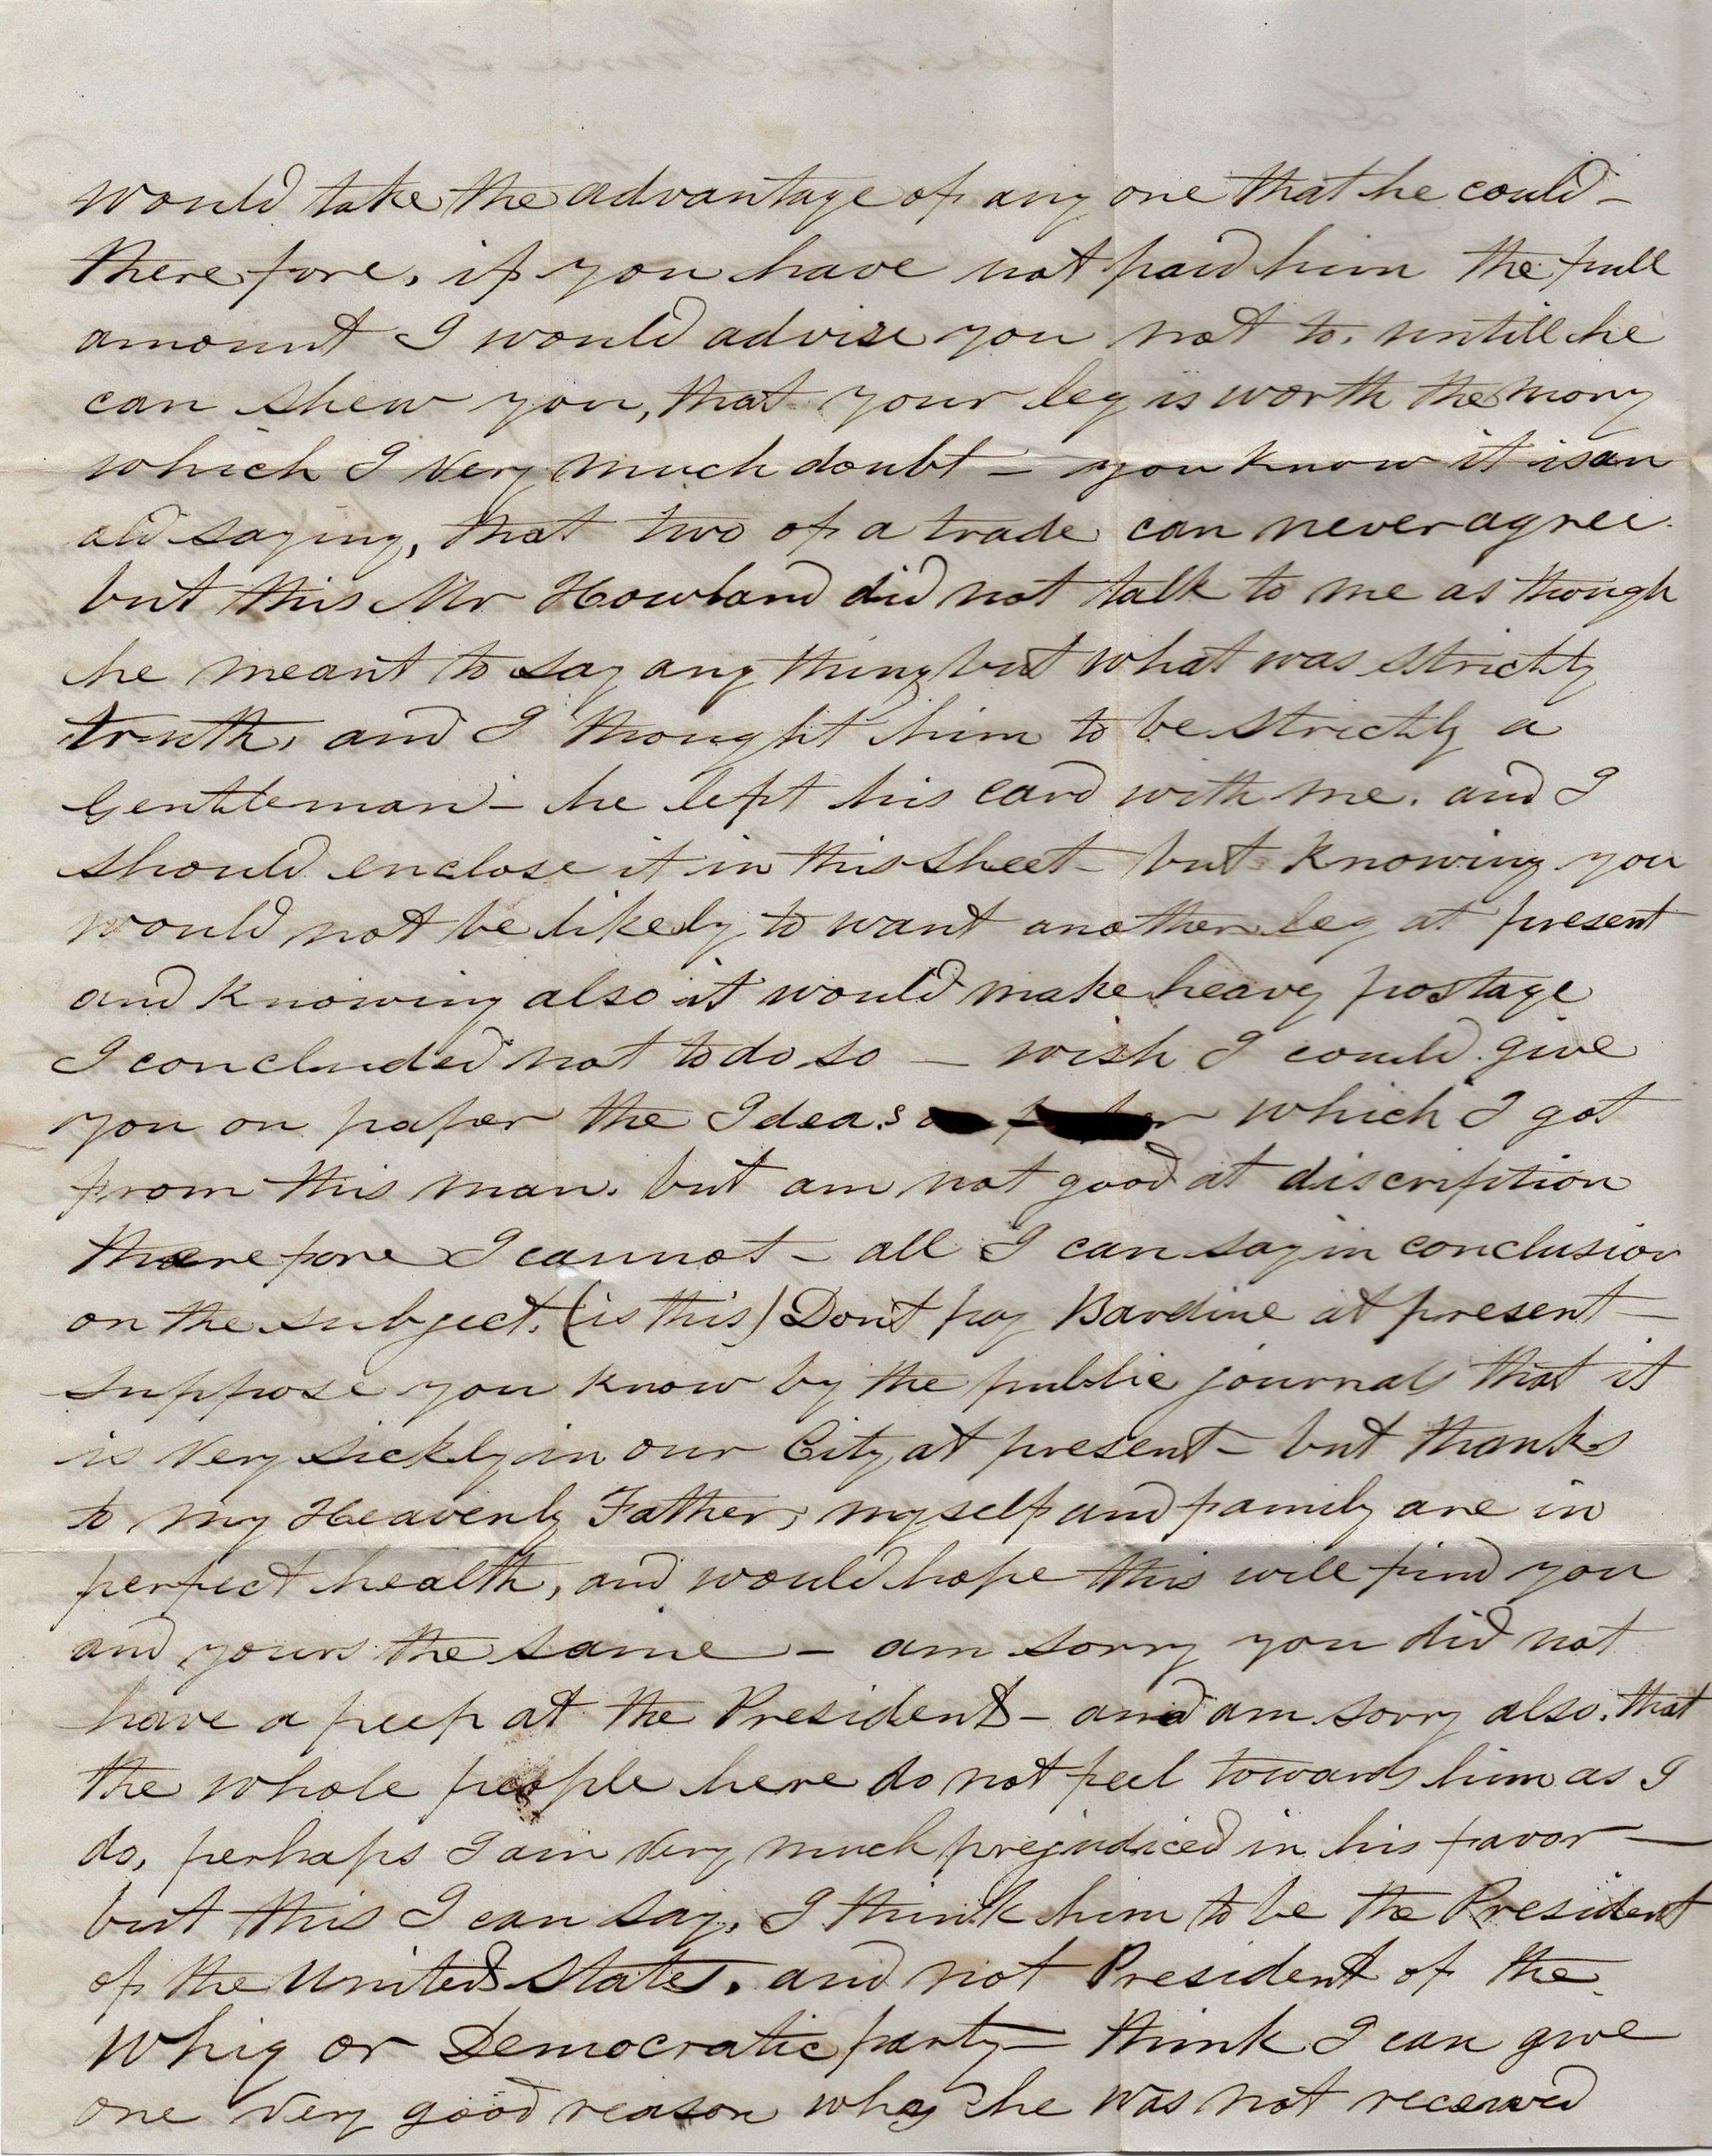 would take the advantage of any one that he could –
therefore, if you have not paid him the full
amount I would advise you not to, untill he
can shew you, that your leg is worth the mony
which I very much doubt – you know it is an
old saying, that two of a trade can never agree.
but this Mr Howland did not talk to me as though
he meant to say any thing but what was strictly
truth, and I thought him to be strictly a
Gentleman – he left his card with me. and I
should enclose it in this sheet – but knowing you
would not be likely to want another leg at present
and knowing also it would make heavy postage
I concluded not to do so – wish I could give
you on paper the Ideas which I got
from this man. but am not good at discription
therefore I cannot – all I can say in conclusion
on the subject. (is this) Dont pay Bardine at present –
suppose you know by the public journals that it
is very sickly in our City at present – but thanks
to my Heavenly Father, myself and family are in
perfect health, and would hope this will find you
and yours the same – am sorry you did not
have a peep at the President – and am sorry also, that
the whole people here do not feel towards him as I
do, perhaps I am very much prejudiced in his favor –
but this I can say, I think him to be the President
of the United States, and not President of the
Whig or Democratic party – think I can give
one very good reason why he was not received